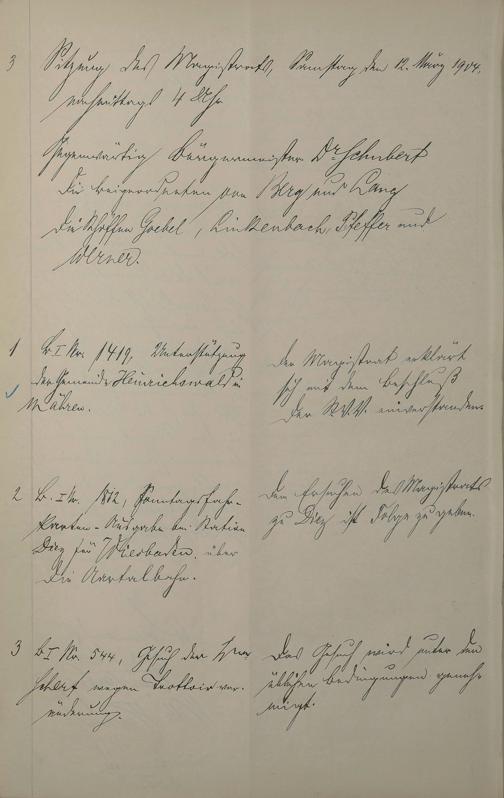 3 Sitzung des Magistrats, Samstag den 12. März 1904,
nachmittags 4 Uhr
Gegenwärtig Bürgermeister Dr Schubert
die Beigeordneten von Berg und Lang
die Schöffen Goebel, Linkenbach, Pfeffer und
Werner.
1 B. I Nr. 1419, Unterstützung
der Gemeinde Heinrichswald in
Mähren.
Der Magistrat erklärt
sich mit dem Beschluß
der einverstanden.
2 B. I Nr. 1812, Sonntagsfahr-
karten-Ausgabe bei Station
Diez für Wiesbaden über
die Aartalbahn.
Dem Ersuchen des Magistrats
zu Diez ist Folge zu geben.
3 B I Nr. 544, Gesuch der
wegen Trottoirver-
änderung.
Das Gesuch wird unter den
üblichen Bedingungen geneh-
migt.